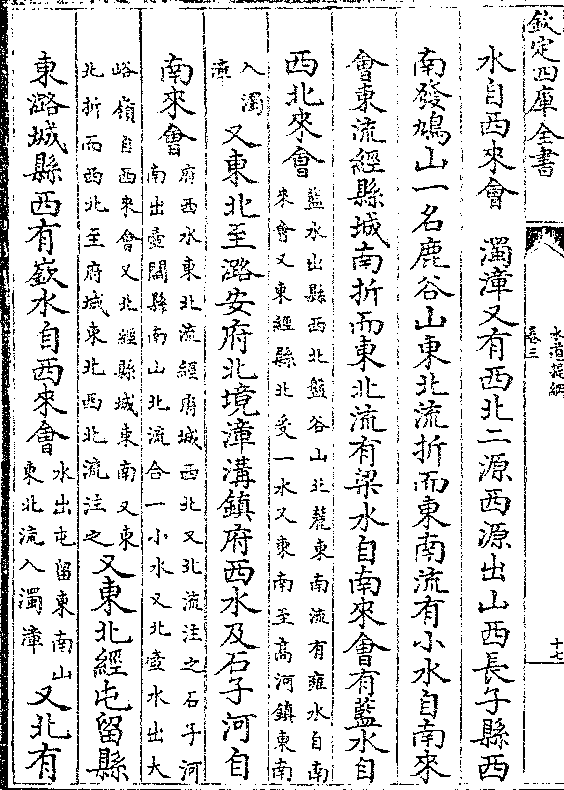 欽定四庫全書
水道提綱
卷三
十七
水自西來會　濁漳又有西北二源西源出山西長子縣西
南發鳩山一名鹿谷山東北流折而東南流有小水自南來
會東流經縣城南折而東北流有梁水自南來會有藍水自
西北來會
藍水出縣西北盤谷山北麓東南流有雍水自南
來會又東經縣北受一水又東南至高河鎮東南
入濁
漳
又東北至潞安府北境漳溝鎮府西水及石子河自
南來會
府西水東北流經府城西北又北流注之石子河
南出壺關縣南山北流合一小水又北壺水出大
峪嶺自西來會又北經縣城東南又東
北折而西北至府城東北西北流注之
又東北經屯留縣
東潞城縣西有嶽水自西來會
水出屯留東南山
東北流入濁漳
又北有